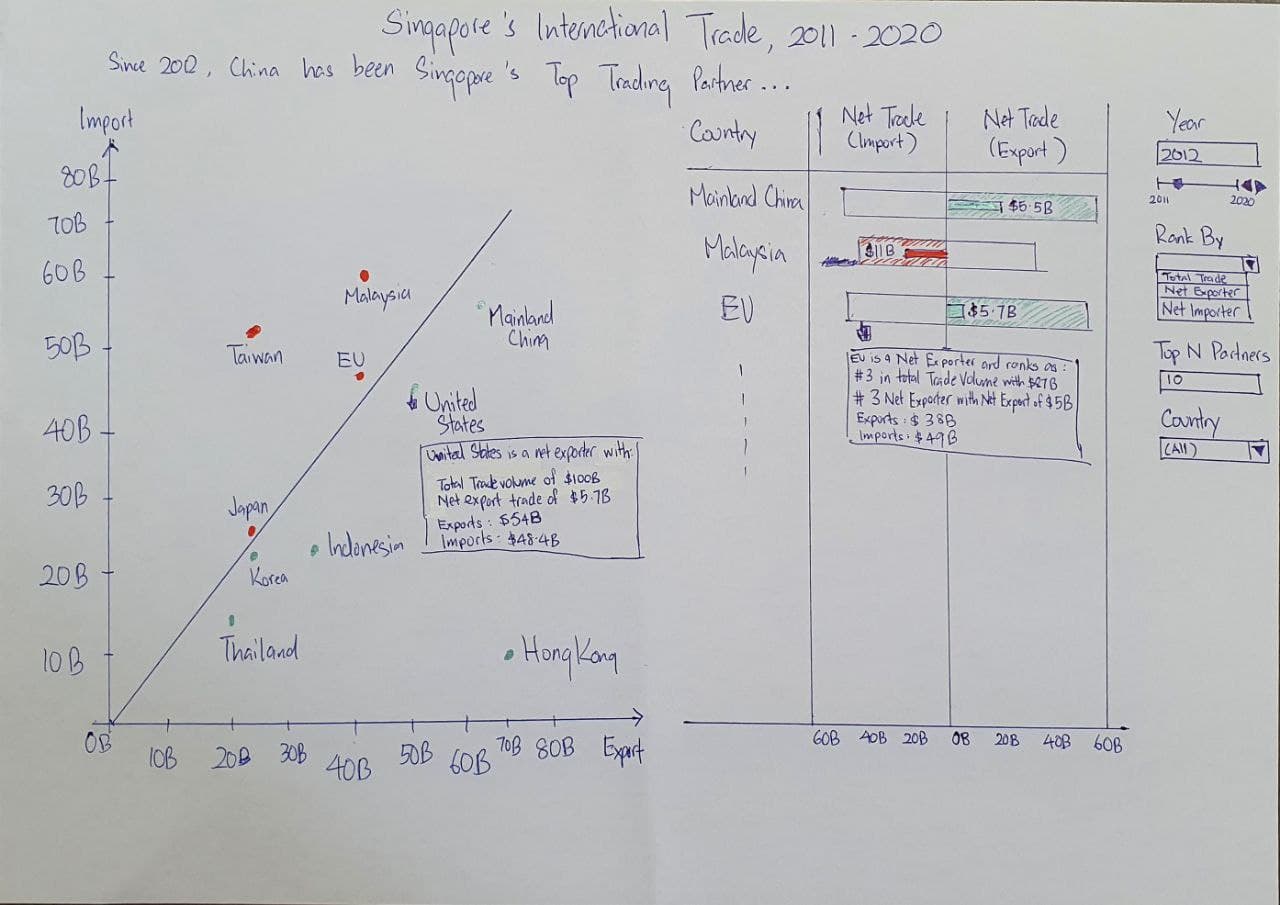 Singapore's International Trade, 2011 - 2020
Since 2012, China has been Singapore's Top Trading Partner...
Import
80B
70B
60B
50B
40B
30B
20B
10B
0B
10B
20B
30B
40B
50B
60B
70B
80B
Export
Malaysia
Taiwan
EU
Mainland
China
United
States
United States is a net exporter with:
Total Trade volume of $100B
Net export trade of $5.7B
Exports: $54B
Imports: $48.4B
Japan
Korea
Indonesia
Thailand
Hong Kong
Country
Net Trade
(Import)
Net Trade
(Export)
Mainland China
$5.5B
Malaysia
$11B
EU
$5.7B
EU is a Net Exporter and ranks as:
#3 in total Trade Volume with $87B
# 3 Net Exporter with Net Export of $5B
Exports: $38B
Imports: $49B
60B 40B 20B 0B 20B 40B 60B
Year
2012
2011 2020
Rank By
Total Trade
Net Exporter
Net Importer
Top N Partners
10
Country
(All)